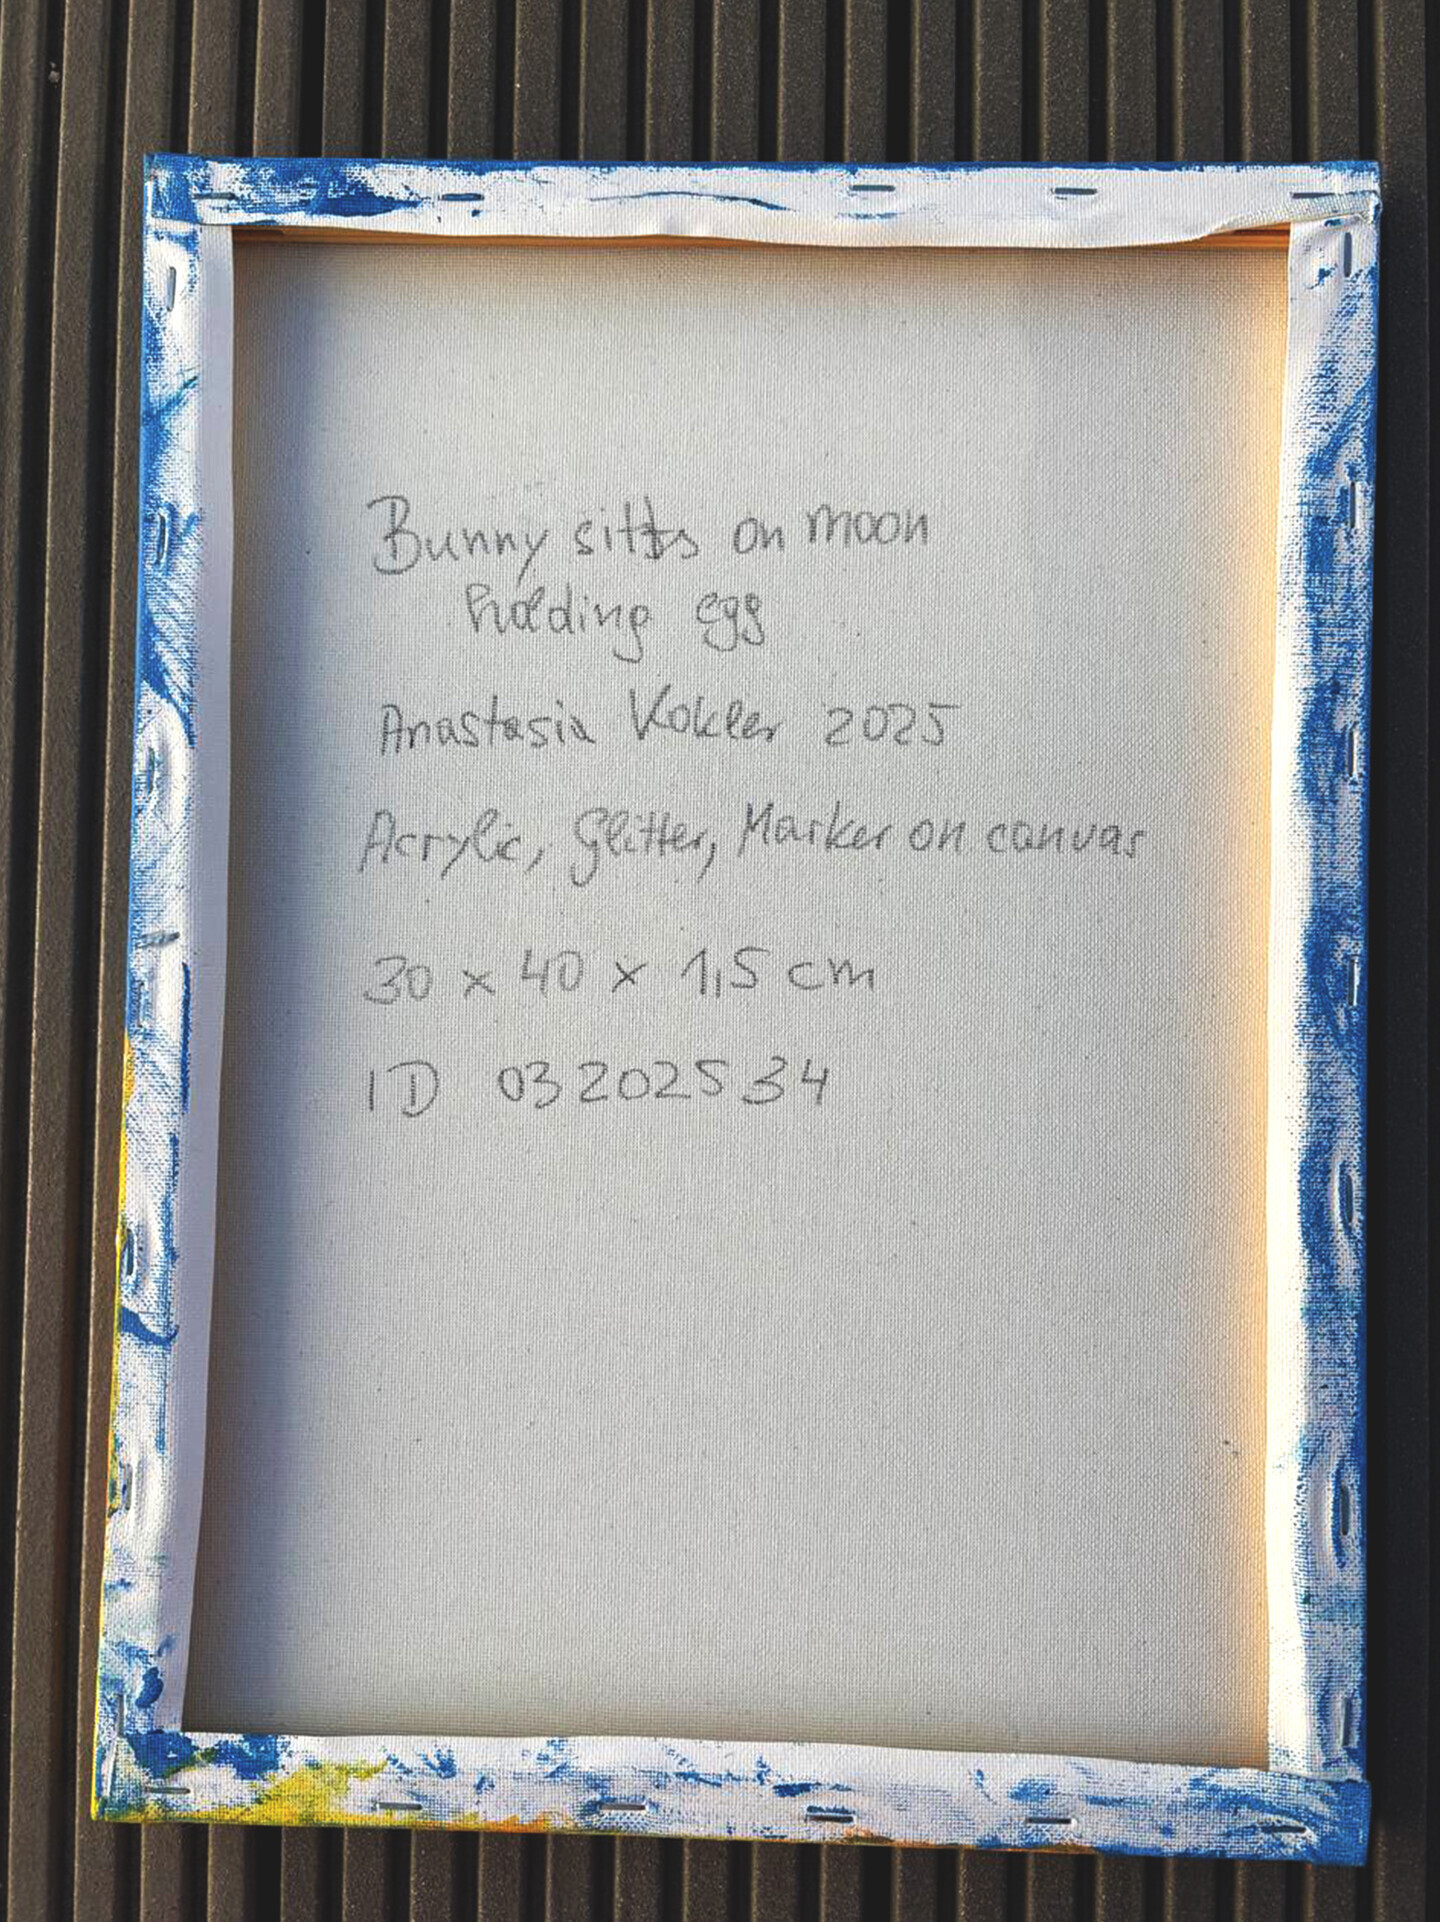 Bunny sitts on moon
holding egg
Anastasia Kokler 2025
Acrylic, Glitter, Marker on canvas
30 x 40 x 1,5 cm
ID 03202534